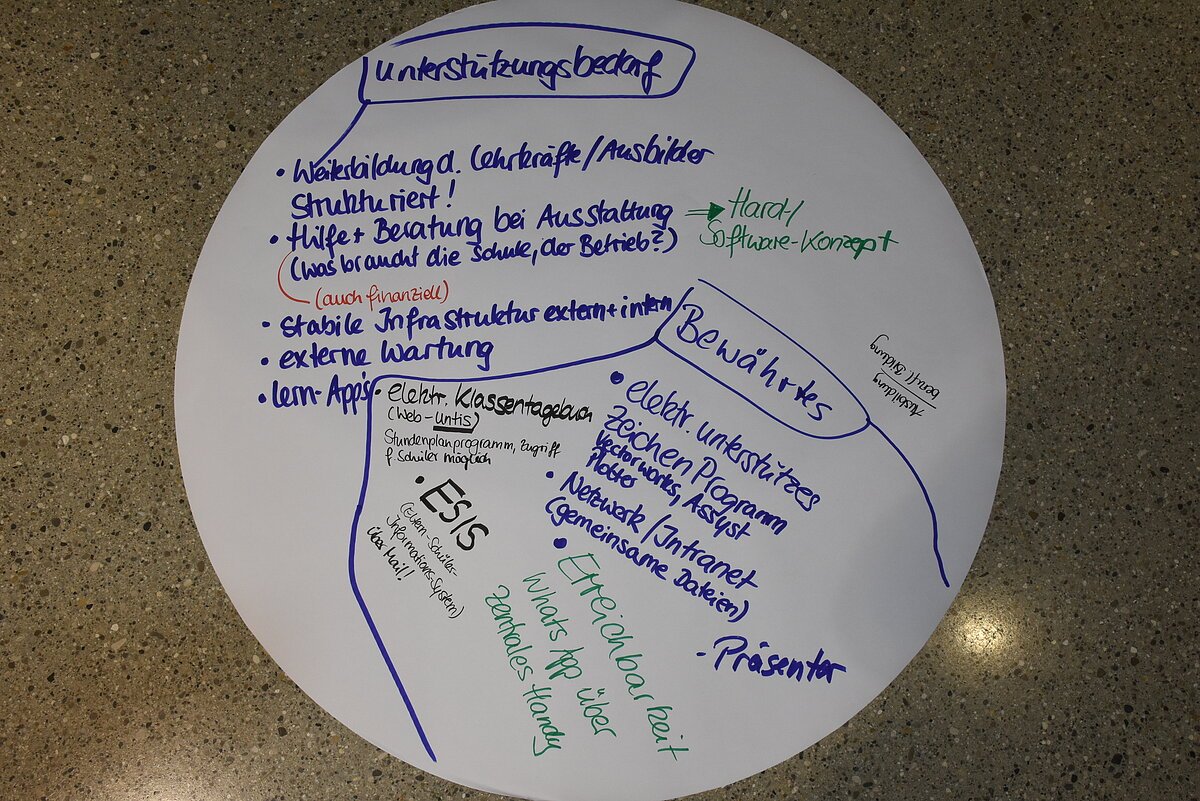 Unterstützungsbedarf
• Weiterbildung d. Lehrkräfte/Ausbilder
Strukturiert!
• Hilfe + Beratung bei Ausstattung
(Was braucht die Schule, der Betrieb?)
⇒ Hard-/
Software-Konzept
(auch finanziell)
• stabile Infrastruktur extern + intern
• externe Wartung
• Lern-App's
Bewährtes
• elektr. Klassentagebuch
(Web-Untis)
Stundenplanprogramm, Zugriff
f. Schüler möglich
• ESIS
(Eltern-Schüler-
Informations-System)
über Mail!
• elektr. unterstützes
Zeichen Programm
Vectorworks, Assyst
Plotter
• Netzwerk/Intranet
(gemeinsame Dateien)
• Erreichbarkeit
Whats App über
zentrales Handy
- Präsenter
Ausbildung
berufl. Bildung